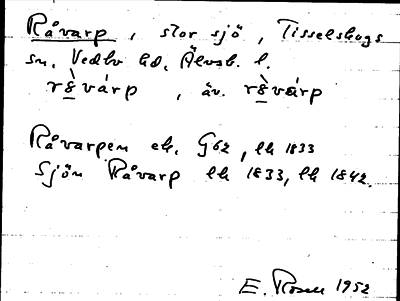 Råvarp, stor sjö, Tisselskogs
sn. Vedbo hd. Älvsb. l.
rèvárp, äv. rèvàrp
Råvarpen ek. G62, lk 1833
Sjön Råvarp lk 1833, lk 1842.
E. Rosell 1952